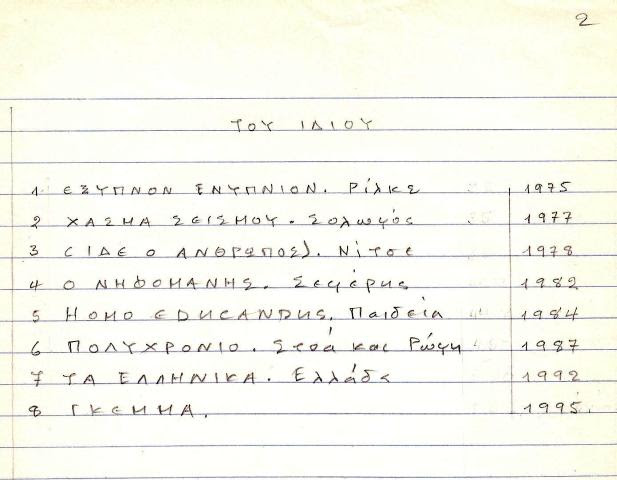 2
ΤΟΥ ΙΔΙΟΥ
1 ΕΞΥΠΝΟΝ ΕΝΥΠΝΙΟΝ. Ρίλκε 1975
2 ΧΑΣΜΑ ΣΕΙΣΜΟΥ. Σολωμός 1977
3 (ΙΔΕ Ο ΑΝΘΡΩΠΟΣ). Νίτσε 1978
4 Ο ΝΗΦΟΜΑΝΗΣ. Σεφέρης 1982
5 HOMO EDUCANDUS. Παιδεία 1984
6 ΠΟΛΥΧΡΟΝΙΟ. Στοά και Ρώμη 1987
7 ΤΑ ΕΛΛΗΝΙΚΑ. Ελλάδα 1992
8 ΓΚΕΜΜΑ. 1995.